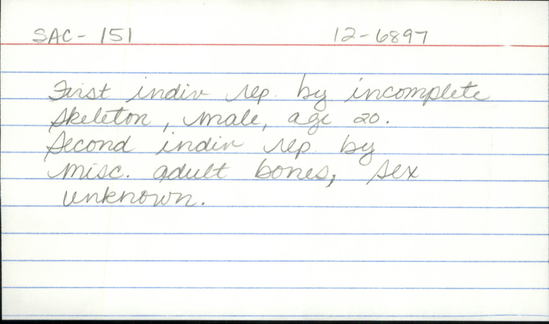 SAC-151 12-6897
First indiv rep. by incomplete
skeleton, male, age 20.
Second indiv rep by
misc. adult bones, sex
unknown.